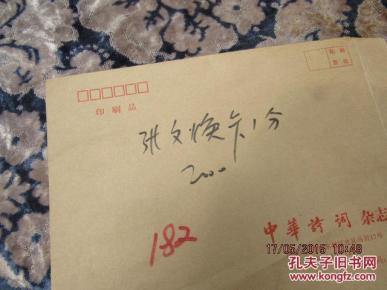 印刷品
张文焕卡1份
2000
182
中华诗词杂志
17/05/2015 10:48
孔夫子旧书网